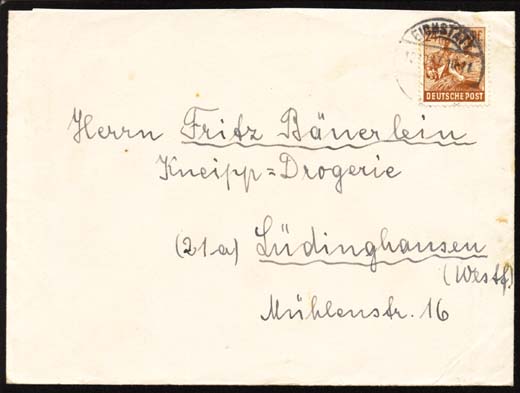 EICHSTÄTT
24
DEUTSCHE POST
Herrn Fritz Bäuerlein
Kneipp=Drogerie
(21a) Lüdinghausen
(Westf.)
Mühlenstr. 16